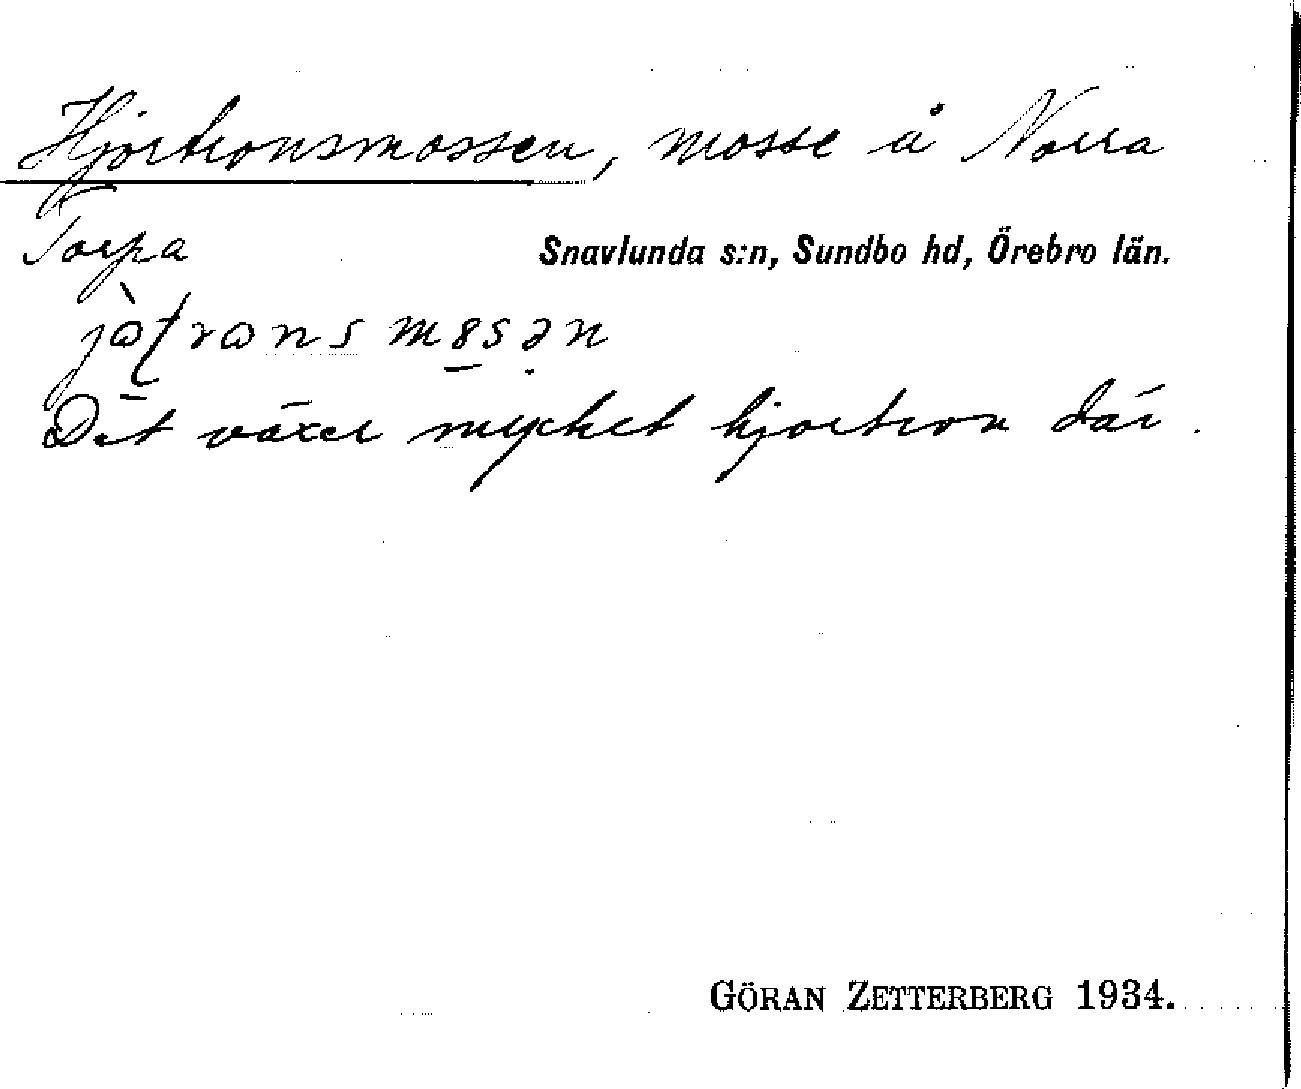 Hjortronsmossen, mosse å Norra
Torpa
Snavlunda s:n, Sundbo hd, Örebro län.
Det växer mycket hjortron där.
GÖRAN ZETTERBERG 1934.